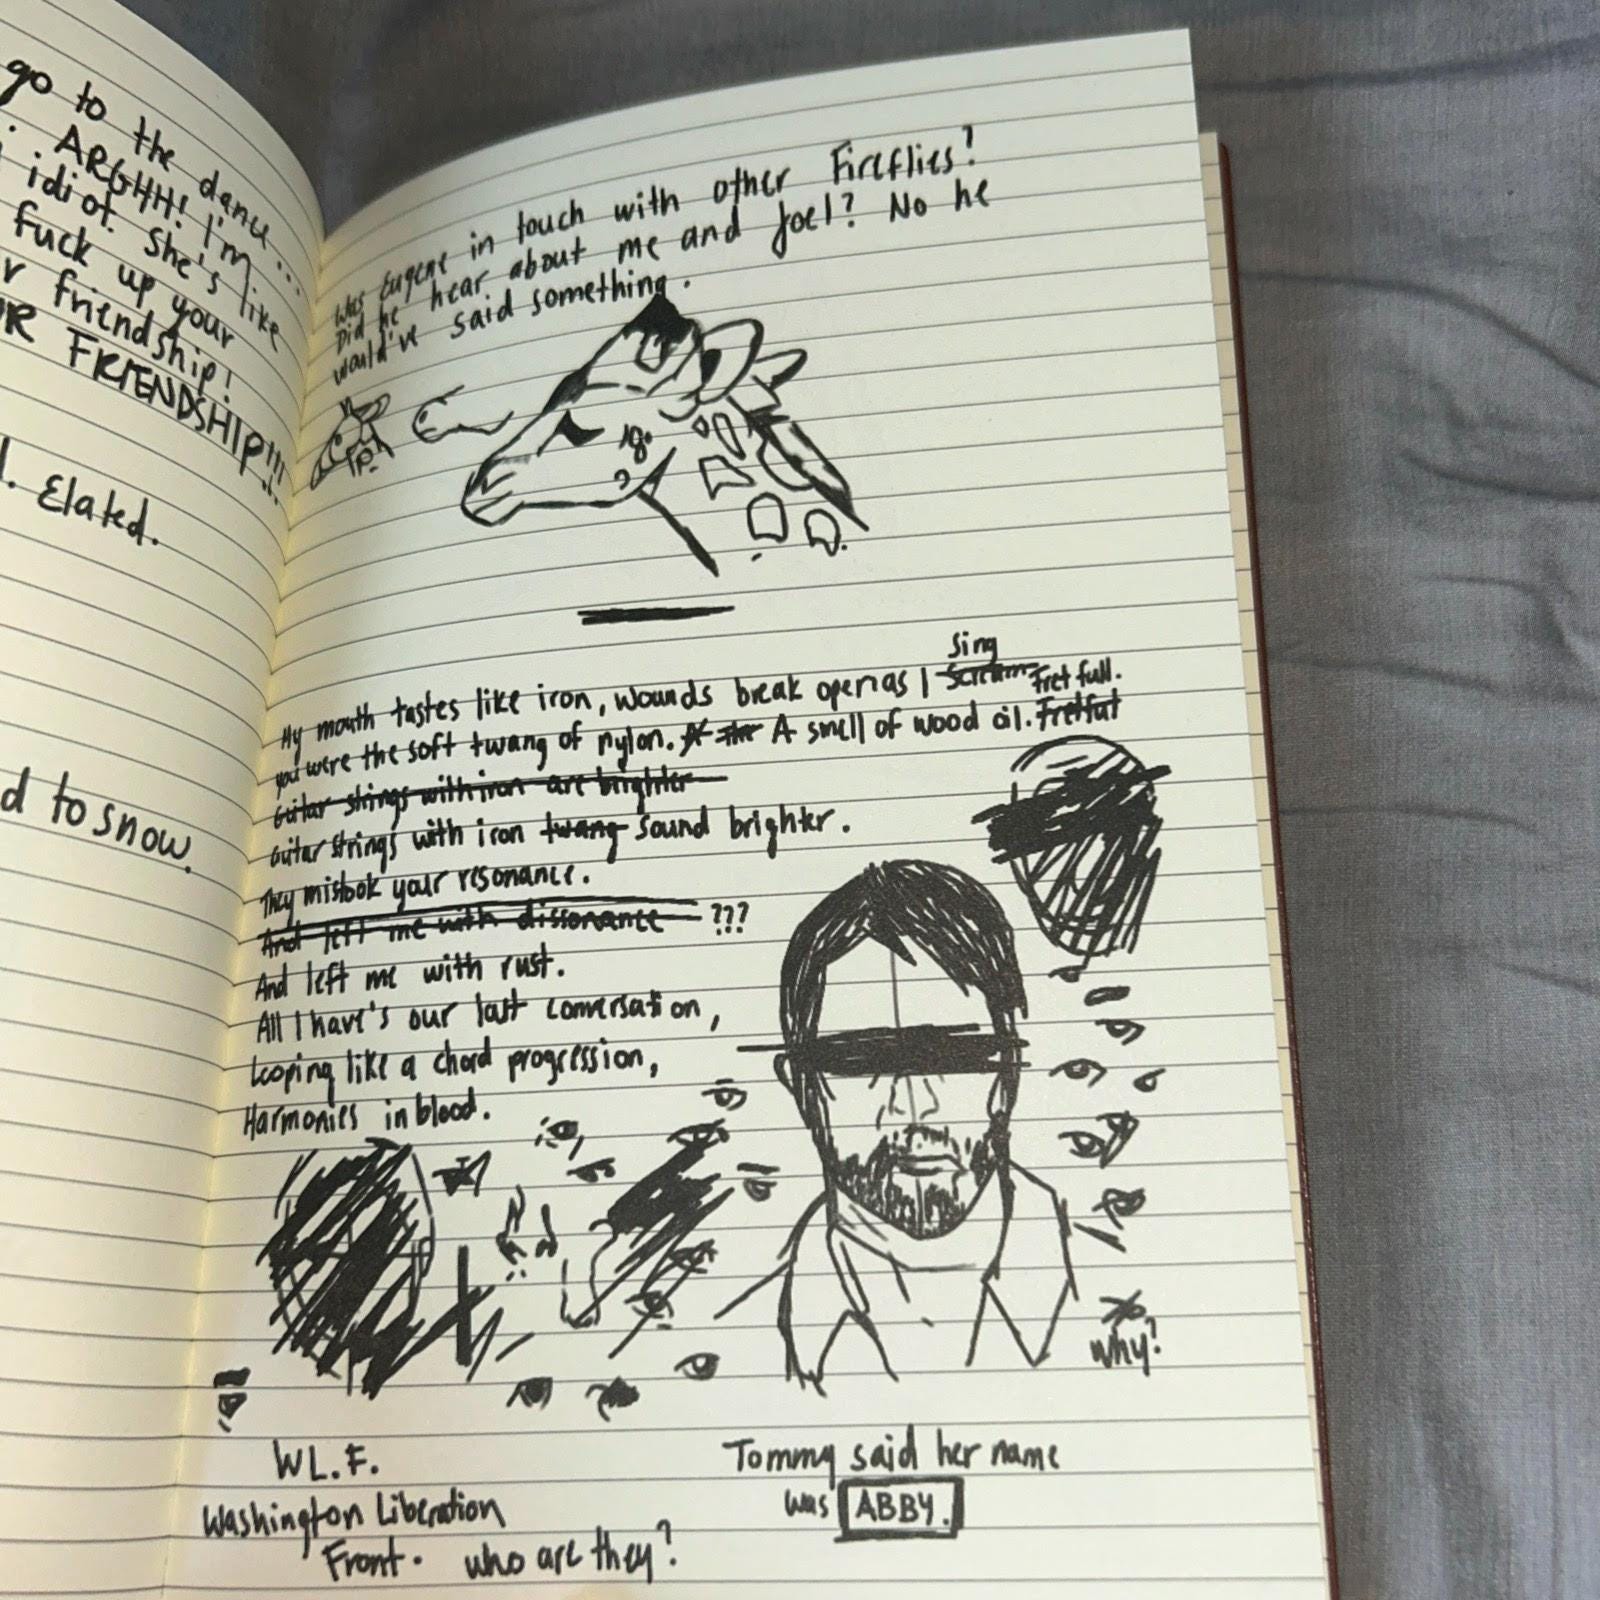 go to the dance...
. ARGHH! I'm
idiot. She's like
fuck up your
r friendship!
R FRIENDSHIP!!!
. Elated.
d to snow.
Was Eugene in touch with other Fireflies?
Did he hear about me and Joel? No he
would've said something.
My mouth tastes like iron, wounds break open as I scream sing
you were the soft twang of nylon. A smell of wood oil. Fretful Fret full.
Guitar strings with iron are brighter
Guitar strings with iron twang sound brighter.
They mistook your resonance.
And left me with dissonance ???
And left me with rust.
All I have's our last conversation,
Looping like a chord progression,
Harmonies in blood.
why?
W.L.F.
Washington Liberation
Front. who are they?
Tommy said her name
was ABBY.